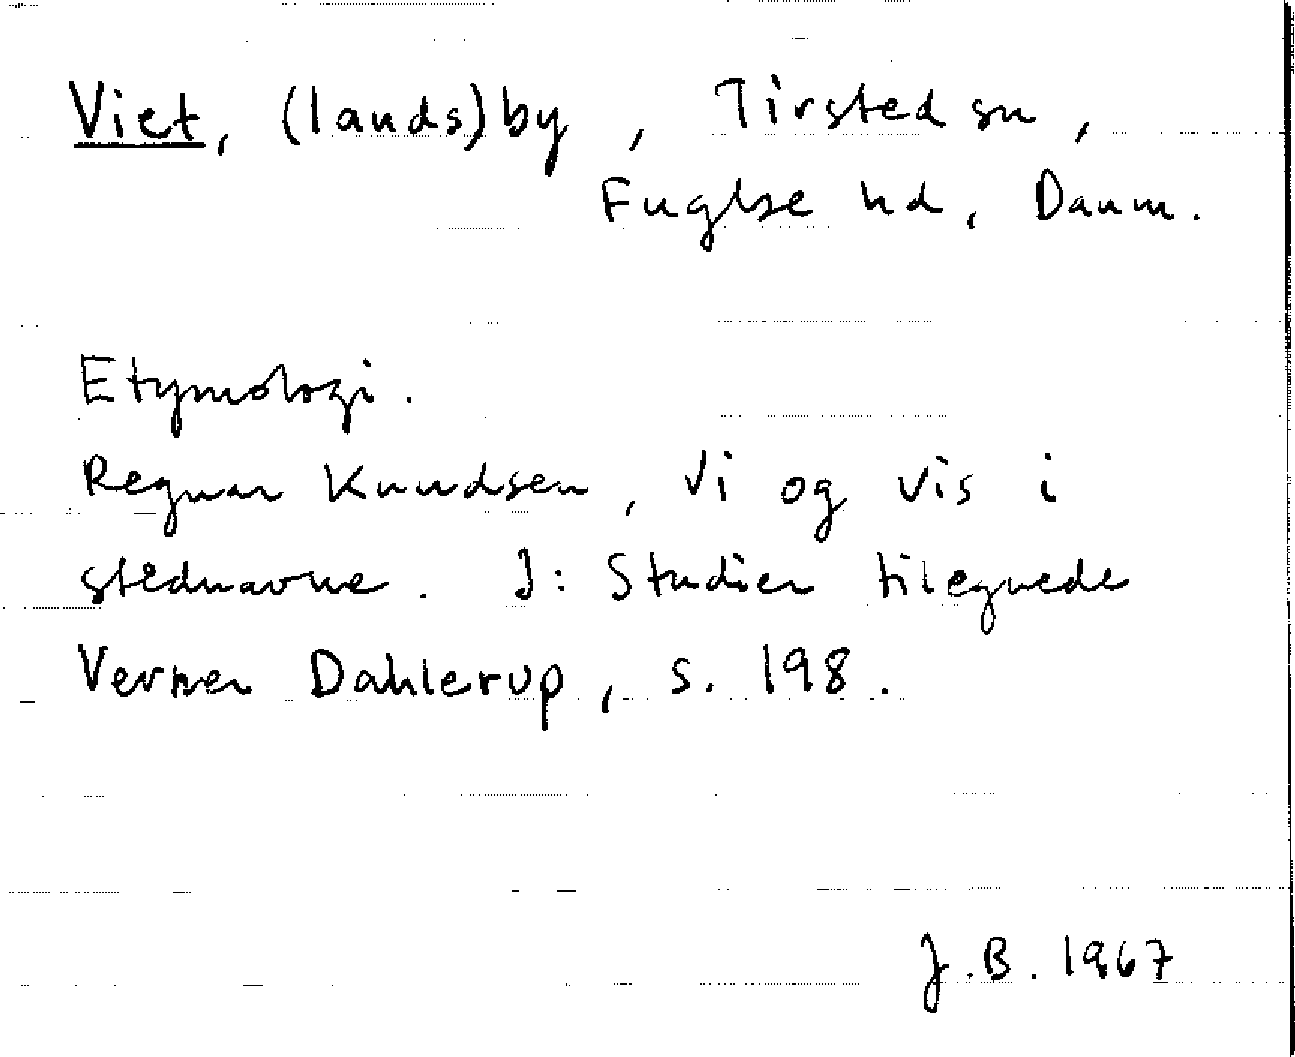 Viet, (lands)by, Tirsted sn,
Fuglse hd, Danm.
Etymologi.
Regnar Knudsen, Vi og vis i
stednavne. I: Studier tilegnede
Verner Dahlerup, s. 198.
J.B. 1967